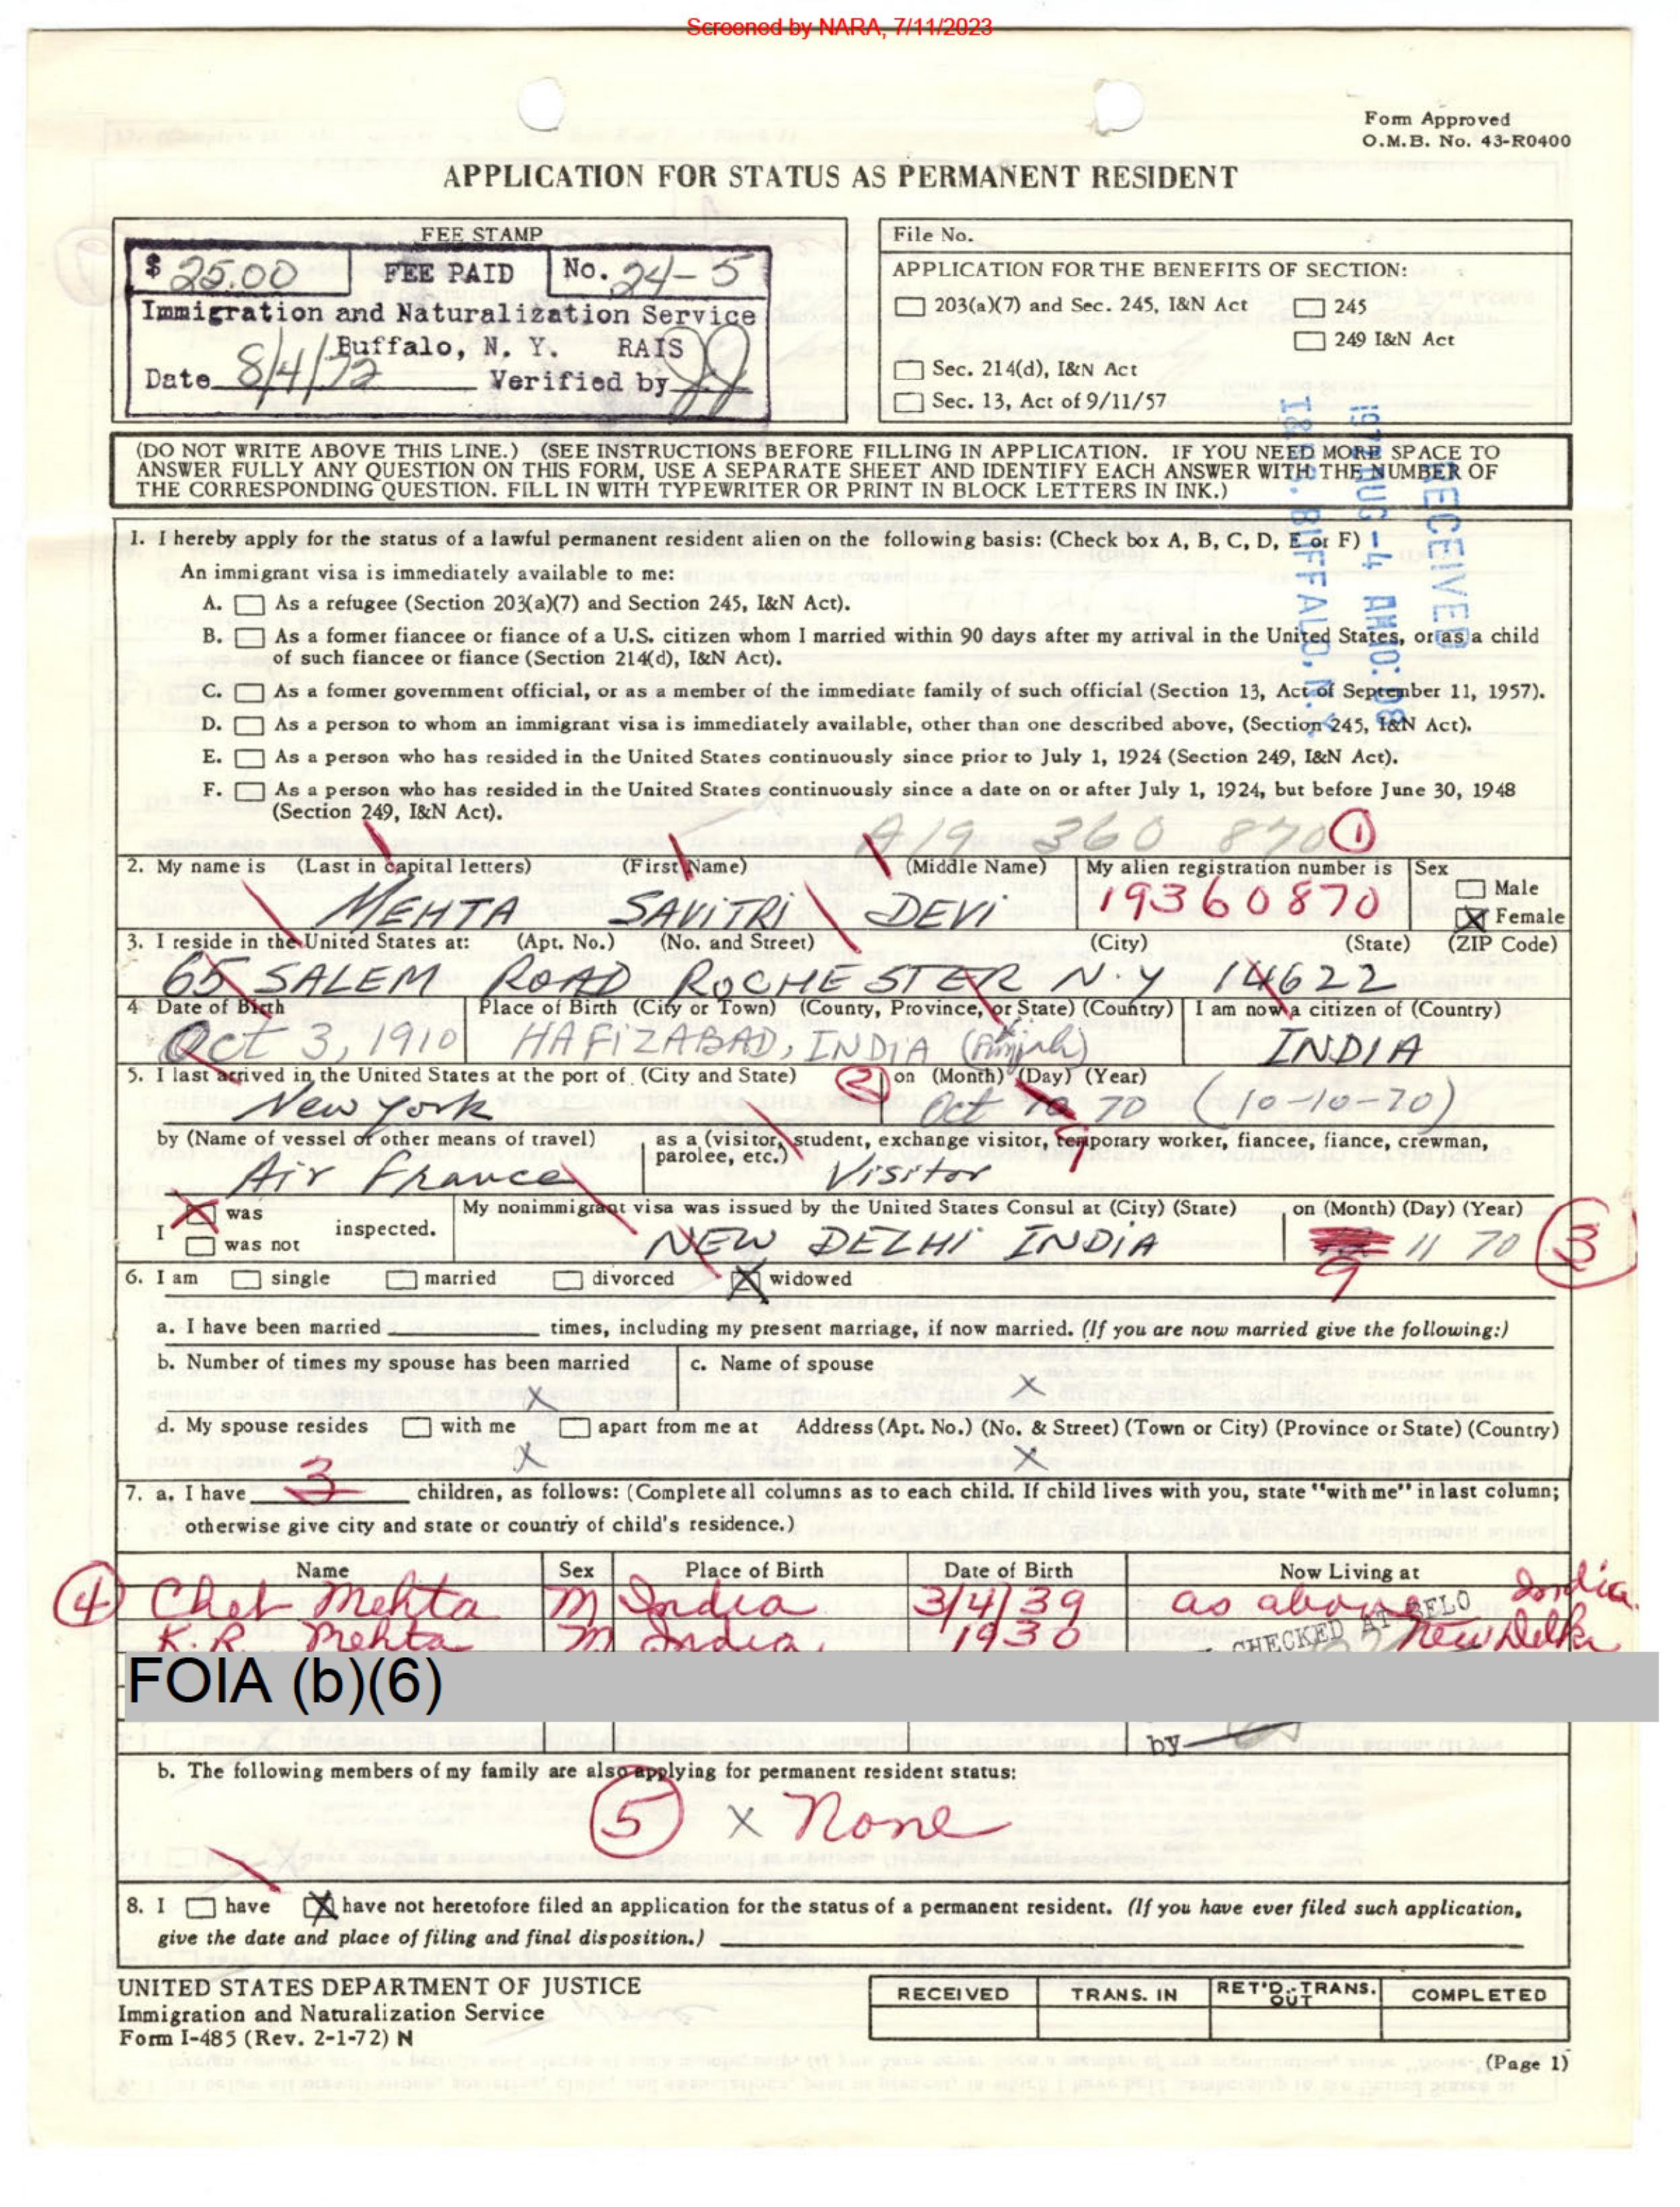 Screened by NARA, 7/11/2023
Form Approved
O.M.B. No. 43-R0400
APPLICATION FOR STATUS AS PERMANENT RESIDENT
FEE STAMP
$ 25.00 FEE PAID No. 24-5
Immigration and Naturalization Service
Buffalo, N. Y. RAIS
Date 8/4/72 Verified by
File No.
APPLICATION FOR THE BENEFITS OF SECTION:
203(a)(7) and Sec. 245, I&N Act 245
249 I&N Act
Sec. 214(d), I&N Act
Sec. 13, Act of 9/11/57
RECEIVED
1972 AUG -4 AM 10:08
I&NS. BUFFALO, N.Y.
(DO NOT WRITE ABOVE THIS LINE.) (SEE INSTRUCTIONS BEFORE FILLING IN APPLICATION. IF YOU NEED MORE SPACE TO
ANSWER FULLY ANY QUESTION ON THIS FORM, USE A SEPARATE SHEET AND IDENTIFY EACH ANSWER WITH THE NUMBER OF
THE CORRESPONDING QUESTION. FILL IN WITH TYPEWRITER OR PRINT IN BLOCK LETTERS IN INK.)
1. I hereby apply for the status of a lawful permanent resident alien on the following basis: (Check box A, B, C, D, E or F)
An immigrant visa is immediately available to me:
A. As a refugee (Section 203(a)(7) and Section 245, I&N Act).
B. As a former fiancee or fiance of a U.S. citizen whom I married within 90 days after my arrival in the United States, or as a child
of such fiancee or fiance (Section 214(d), I&N Act).
C. As a former government official, or as a member of the immediate family of such official (Section 13, Act of September 11, 1957).
D. As a person to whom an immigrant visa is immediately available, other than one described above, (Section 245, I&N Act).
E. As a person who has resided in the United States continuously since prior to July 1, 1924 (Section 249, I&N Act).
F. As a person who has resided in the United States continuously since a date on or after July 1, 1924, but before June 30, 1948
(Section 249, I&N Act).
A19 360 870 1
2. My name is (Last in capital letters) (First Name) (Middle Name) My alien registration number is Sex
Male
MEHTA SAVITRI DEVI 19360870 X Female
3. I reside in the United States at: (Apt. No.) (No. and Street) (City) (State) (ZIP Code)
65 SALEM ROAD ROCHESTER N.Y 14622
4. Date of Birth Place of Birth (City or Town) (County, Province, or State) (Country) I am now a citizen of (Country)
Oct 3, 1910 HAFIZABAD, INDIA (Punjab) INDIA
5. I last arrived in the United States at the port of (City and State) 2 on (Month) (Day) (Year)
New York Oct 10 70 (10-10-70)
9
by (Name of vessel or other means of travel) as a (visitor, student, exchange visitor, temporary worker, fiancee, fiance, crewman,
parolee, etc.)
Air France Visitor
I X was
was not inspected. My nonimmigrant visa was issued by the United States Consul at (City) (State) on (Month) (Day) (Year)
NEW DELHI INDIA 11 70 3
9
6. I am single married divorced X widowed
a. I have been married times, including my present marriage, if now married. (If you are now married give the following:)
b. Number of times my spouse has been married c. Name of spouse
X X
d. My spouse resides with me apart from me at Address (Apt. No.) (No. & Street) (Town or City) (Province or State) (Country)
X X
7. a. I have 3 children, as follows: (Complete all columns as to each child. If child lives with you, state "with me" in last column;
otherwise give city and state or country of child's residence.)
Name Sex Place of Birth Date of Birth Now Living at
4 Chet Mehta M India 3/4/39 as above India
K.R. Mehta M India 1930 New Delhi
CHECKED AT BELO
FOIA (b)(6)
by
b. The following members of my family are also applying for permanent resident status:
5 X None
8. I have X have not heretofore filed an application for the status of a permanent resident. (If you have ever filed such application,
give the date and place of filing and final disposition.)
UNITED STATES DEPARTMENT OF JUSTICE
Immigration and Naturalization Service
Form I-485 (Rev. 2-1-72) N
RECEIVED TRANS. IN RET'D.-TRANS. OUT COMPLETED
(Page 1)